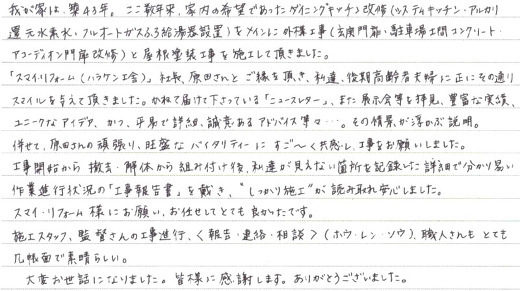 我が家は、築43年。ここ数年来、家内の希望であったダイニングキッチン改修(システムキッチン・アルカリ
還元水素水・フルオートガスふろ給湯器設置)をメインに外構工事(玄関門扉・駐車場土間コンクリート・
アコーデオン門扉改修)と屋根塗装工事を施工して頂きました。
「スマイリフォーム(ハラケン工舎)」社長、原田さんとご縁を頂き、私達、後期高齢者夫婦に正にその通り
スマイルを与えて頂きました。かねて届けて下さっている「ニュースレター」、また展示会等を拝見、豊富な実績、
ユニークなアイデア、かつ、平易で詳細、誠意あるアドバイス等々…。その情景が浮かぶ説明。
併せて、原田さんの頑張り、旺盛なバイタリティーにすご〜く共感し、工事をお願いしました。
工事開始から撤去・解体から組み付け後、私達が見えない箇所を記録した詳細で分かり易い
作業進行状況の「工事報告書」を戴き、"しっかり施工"が読み取れ安心しました。
スマイ・リフォーム様にお願い、お任せしてとても良かったです。
施工スタッフ、監督さんの工事進行、<報告・連絡・相談>(ホウ・レン・ソウ)、職人さんもとても
几帳面で素晴らしい。
大変お世話になりました。皆様に感謝します。ありがとうございました。